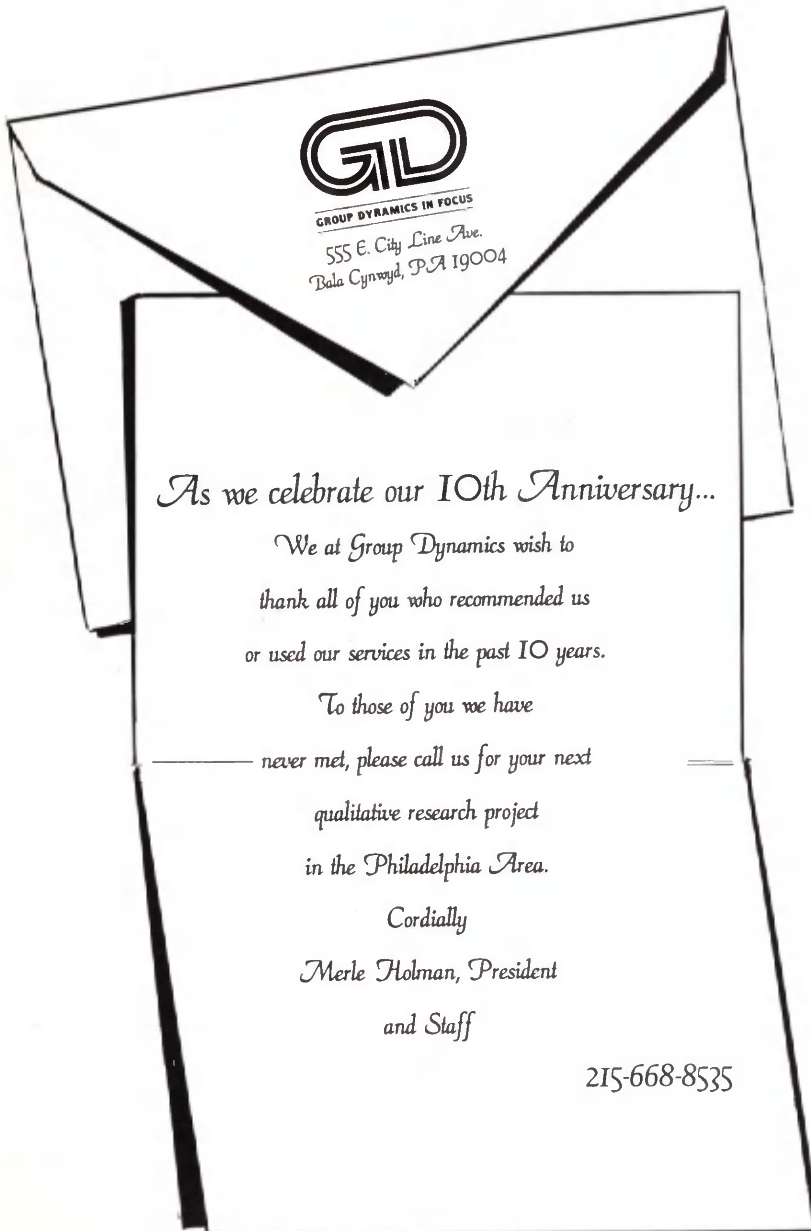 GD
GROUP DYRAMICS IN FOCUS
555 E. City Line Ave.
Bala Cynwyd, PA 19004
As we celebrate our 10th Anniversary...
We at Group Dynamics wish to
thank all of you who recommended us
or used our services in the past 10 years.
To those of you we have
never met, please call us for your next
qualitative research project
in the Philadelphia Area.
Cordially
Merle Holman, President
and Staff
215-668-8535